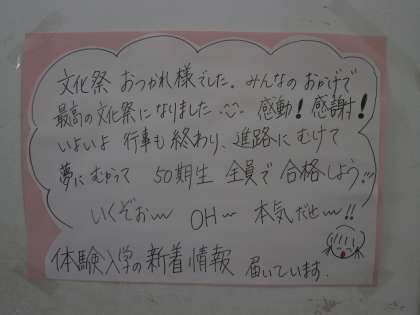 文化祭 おつかれ様でした。みんなのおかげで
最高の文化祭になりました 感動！感謝！
いよいよ 行事も終わり、進路にむけて
夢にむかって 50期生 全員で合格しよう!!
いくぞぉ〜 OH〜 本気だせ〜!!
体験入学の新着情報 届いています.